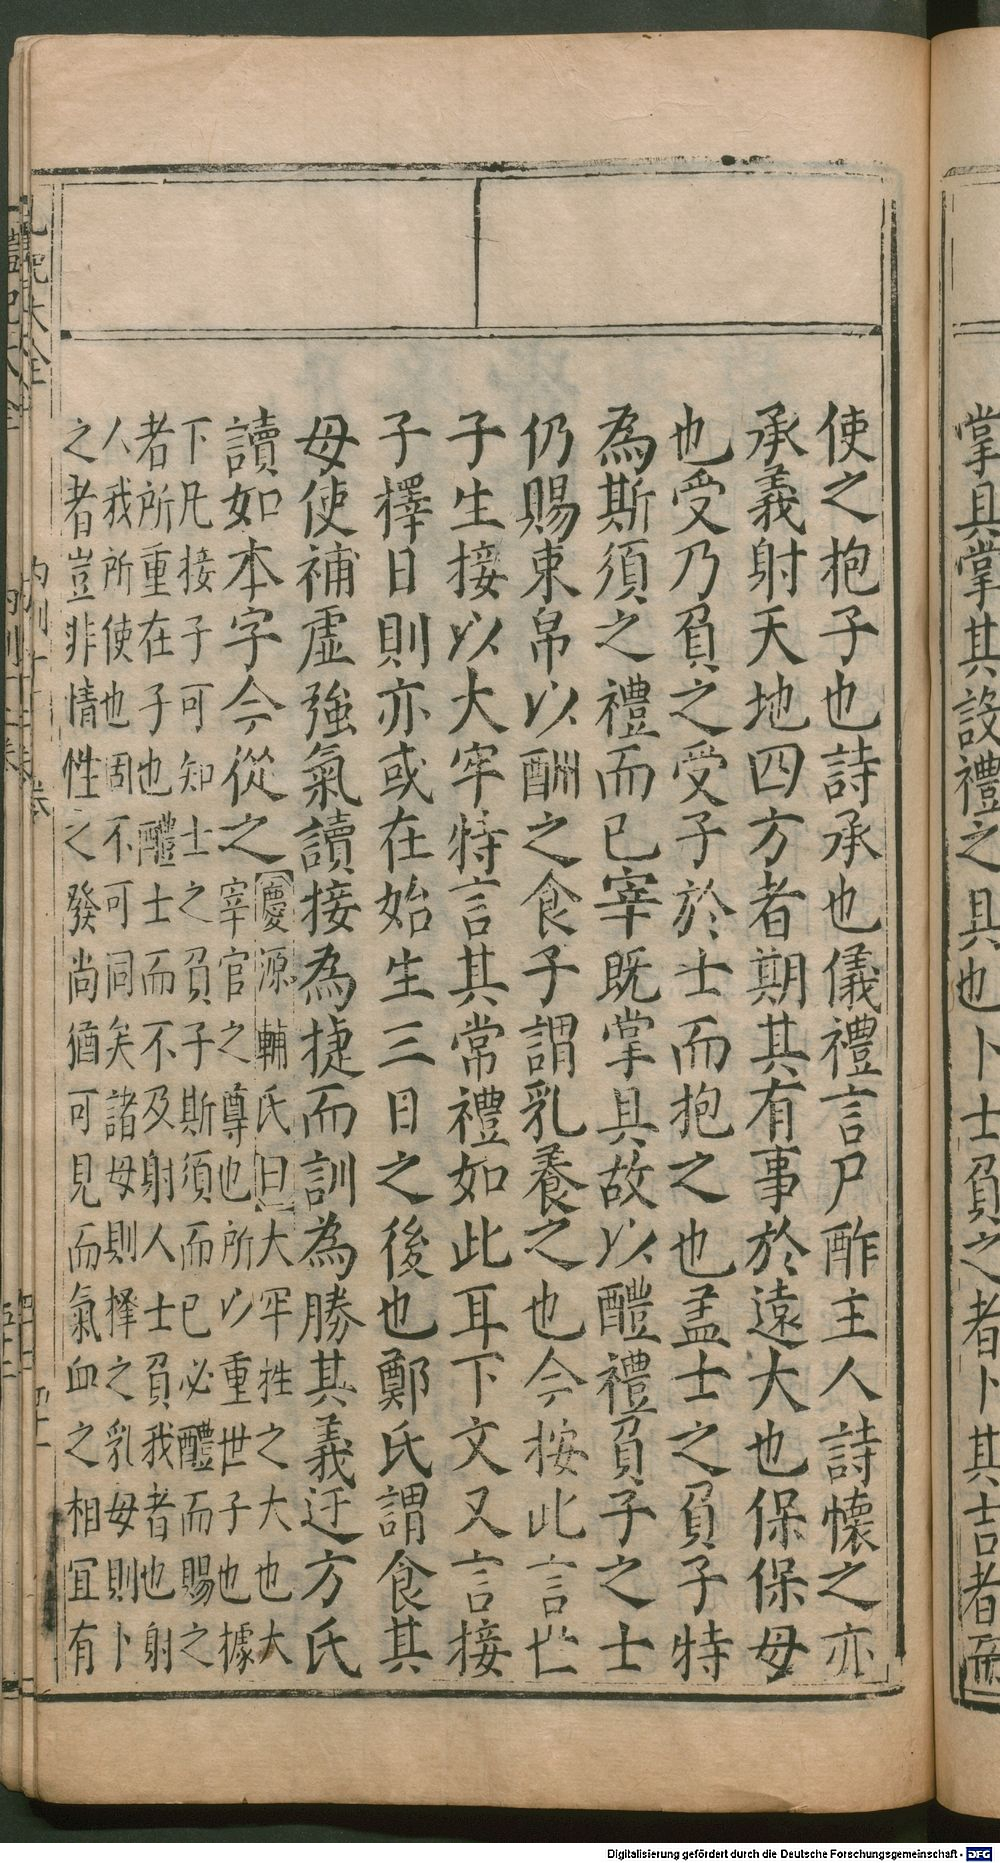 掌具掌其設禮之具也卜士負之者卜其吉者而
使之抱子也詩承也儀禮言尸酢主人詩懷之亦
承義射天地四方者期其有事於遠大也保保母
也受乃負之受子於士而抱之也盖士之負子特
為斯須之禮而已宰既掌具故以醴禮負子之士
仍賜束帛以酬之食子謂乳養之也今按此言世
子生接以大牢特言其常禮如此耳下文又言接
子擇日則亦或在始生三日之後也鄭氏謂食其
母使補虛強氣讀接為捷而訓為勝其義迂方氏
讀如本字今從之
慶源輔氏曰大牢牲之大也大
宰官之尊也所以重世子也據
下凡接子可知士之負子斯須而已必醴而賜之
者所重在子也醴士而不及射人士負我者也射
人我所使也固不可同矣諸母則擇之乳母則卜
之者豈非情性之發尚猶可見而氣血之相宜有
Digitalisierung gefördert durch die Deutsche Forschungsgemeinschaft - DFG